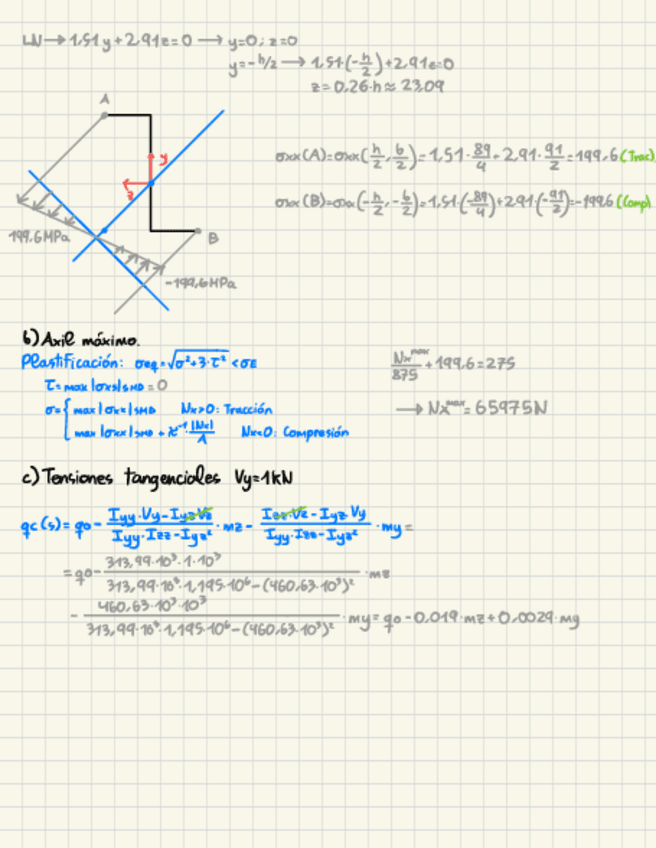 LN → 1,51y + 2,91z = 0 → y=0; z=0
y=-h/2 → 1,51·(-h/2) + 2,91z=0
z = 0,26·h ≈ 23,09
A
y
z
B
199,6MPa
-199,6MPa
σxx(A)=σxx(h/2, b/2)=1,51·89/4+2,91·91/2=199,6 (Trac)
σxx(B)=σxx(-h/2, -b/2)=1,51·(-89/4)+2,91·(-91/2)=-199,6 (Comp)
b) Axil máximo.
Plastificación: σeq=√(σ²+3·τ²) < σE
τ= max|σxs|SMD = 0
σ= { max|σxx|SMD Nx>0: Tracción
max|σxx|SMD + χ⁻¹·|Nx|/A Nx<0: Compresión
Nx^max/875 + 199,6 = 275
→ Nx^max = 65975N
c) Tensiones tangenciales Vy=1kN
qc(s) = q0 - (Iyy·Vy - Iyz·Vz)/(Iyy·Izz - Iyz²) · mz - (Izz·Vz - Iyz·Vy)/(Iyy·Izz - Iyz²) · my =
= q0 - (313,99·10³·1·10³)/(313,99·10³·1,195·10⁶ - (460,63·10³)²) · mz
- (460,63·10³·10³)/(313,99·10³·1,195·10⁶ - (460,63·10³)²) · my = q0 - 0,019·mz + 0,0029·my